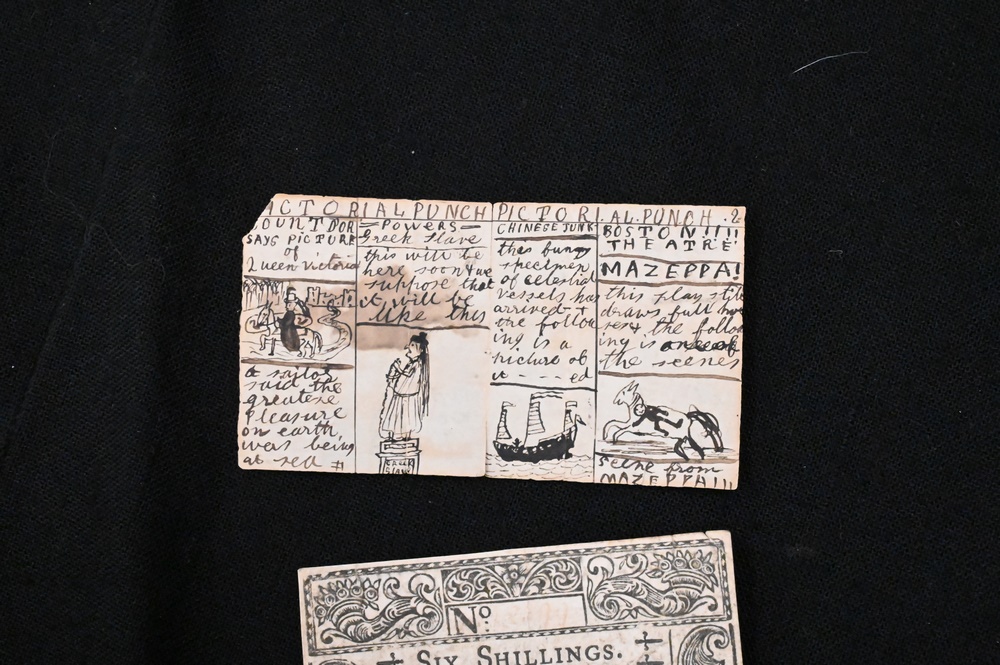 PICTORIAL PUNCH
COUNT D'OR
SAYS PICTURE
of
Queen Victoria
a sailor
said the
greatese
pleasure
on earth
was being
at sea #
POWERS
Greek Slave
this will be
here soon & we
suppose that
it will be
like this
GREEK
SLAVE
PICTORIAL PUNCH . 2
CHINESE JUNK
this funny
specimen
of celestial
vessels has
arrived +
the follow
ing is a
picture of
it - - - - ed
BOSTON!!!!
THEATRE
MAZEPPA!
this play still
draws full hou
ses & the follow
ing is one of
the scenes
Scene from
MAZEPPA!!!
No.
SIX SHILLINGS.